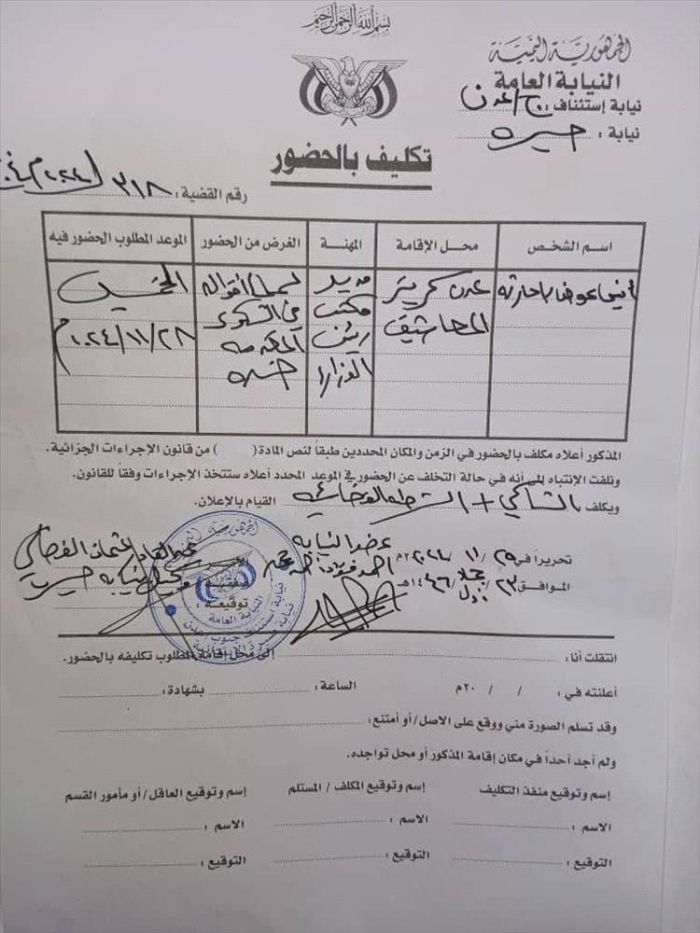 بسم الله الرحمن الرحيم
الجمهورية اليمنية
النيابة العامة
نيابة إستئناف : ج/عدن
نيابة : صيره
تكليف بالحضور
رقم القضية : ٣١٨ / ٢٠٢٤م
اسم الشخص محل الإقامة المهنة الغرض من الحضور الموعد المطلوب الحضور فيه
أنيس عوض باحارثه عدن كريتر مدير لسماع أقواله الخميس
المعاشيق مكتب في الشكوى ٢٠٢٤/١١/٢٨م
رئيس المقدمة
الوزراء ضده
المذكور أعلاه مكلف بالحضور في الزمن والمكان المحددين طبقاً لنص المادة ( ) من قانون الإجراءات الجزائية.
ونلفت الإنتباه إلى أنه في حالة التخلف عن الحضور في الموعد المحدد أعلاه ستتخذ الإجراءات وفقاً للقانون.
ويكلف بالشاكي + الشرطة القضائية القيام بالإعلان.
عضو النيابة
تحريراً في ٢٥ / ١١ / ٢٠٢٤م
الموافق ٢٣ / / ١٤٤٦هـ
وكيل نيابة صيره
توقيعه :
الجمهورية اليمنية
النيابة العامة
نيابة استئناف جنوب عدن
انتقلت أنا : إلى محل إقامة المطلوب تكليفه بالحضور.
أعلنته في : / / ٢٠م الساعة : بشهادة :
وقد تسلم الصورة مني ووقع على الاصل/ أو أمتنع :
ولم أجد أحداً في مكان إقامة المذكور أو محل تواجده.
إسم وتوقيع منفذ التكليف إسم وتوقيع المكلف / المستلم إسم وتوقيع العاقل/ أو مأمور القسم
الاسم : الاسم : الاسم :
التوقيع : التوقيع : التوقيع :